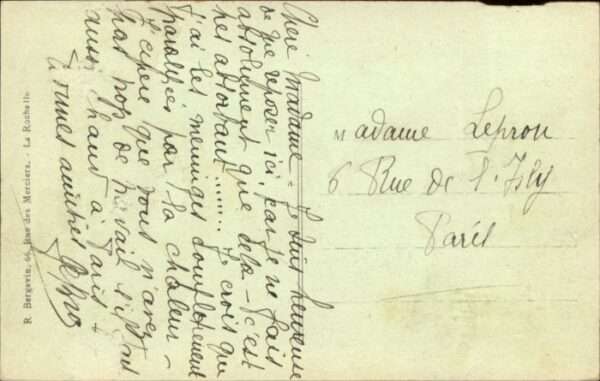 Chère Madame - Je suis heureuse
de me reposer ici, car je ne fais
absolument que cela - c'est
très absorbant....... Je crois que
j'ai les méninges complètement
paralysées par la chaleur -
J'espère que vous n'avez
pas trop de travail s'il fait
aussi chaud à Paris &
bonnes amitiés
Madame Lepron
6 Rue de l'Isly
Paris
R. Bergevin, 66, Rue des Merciers. - La Rochelle